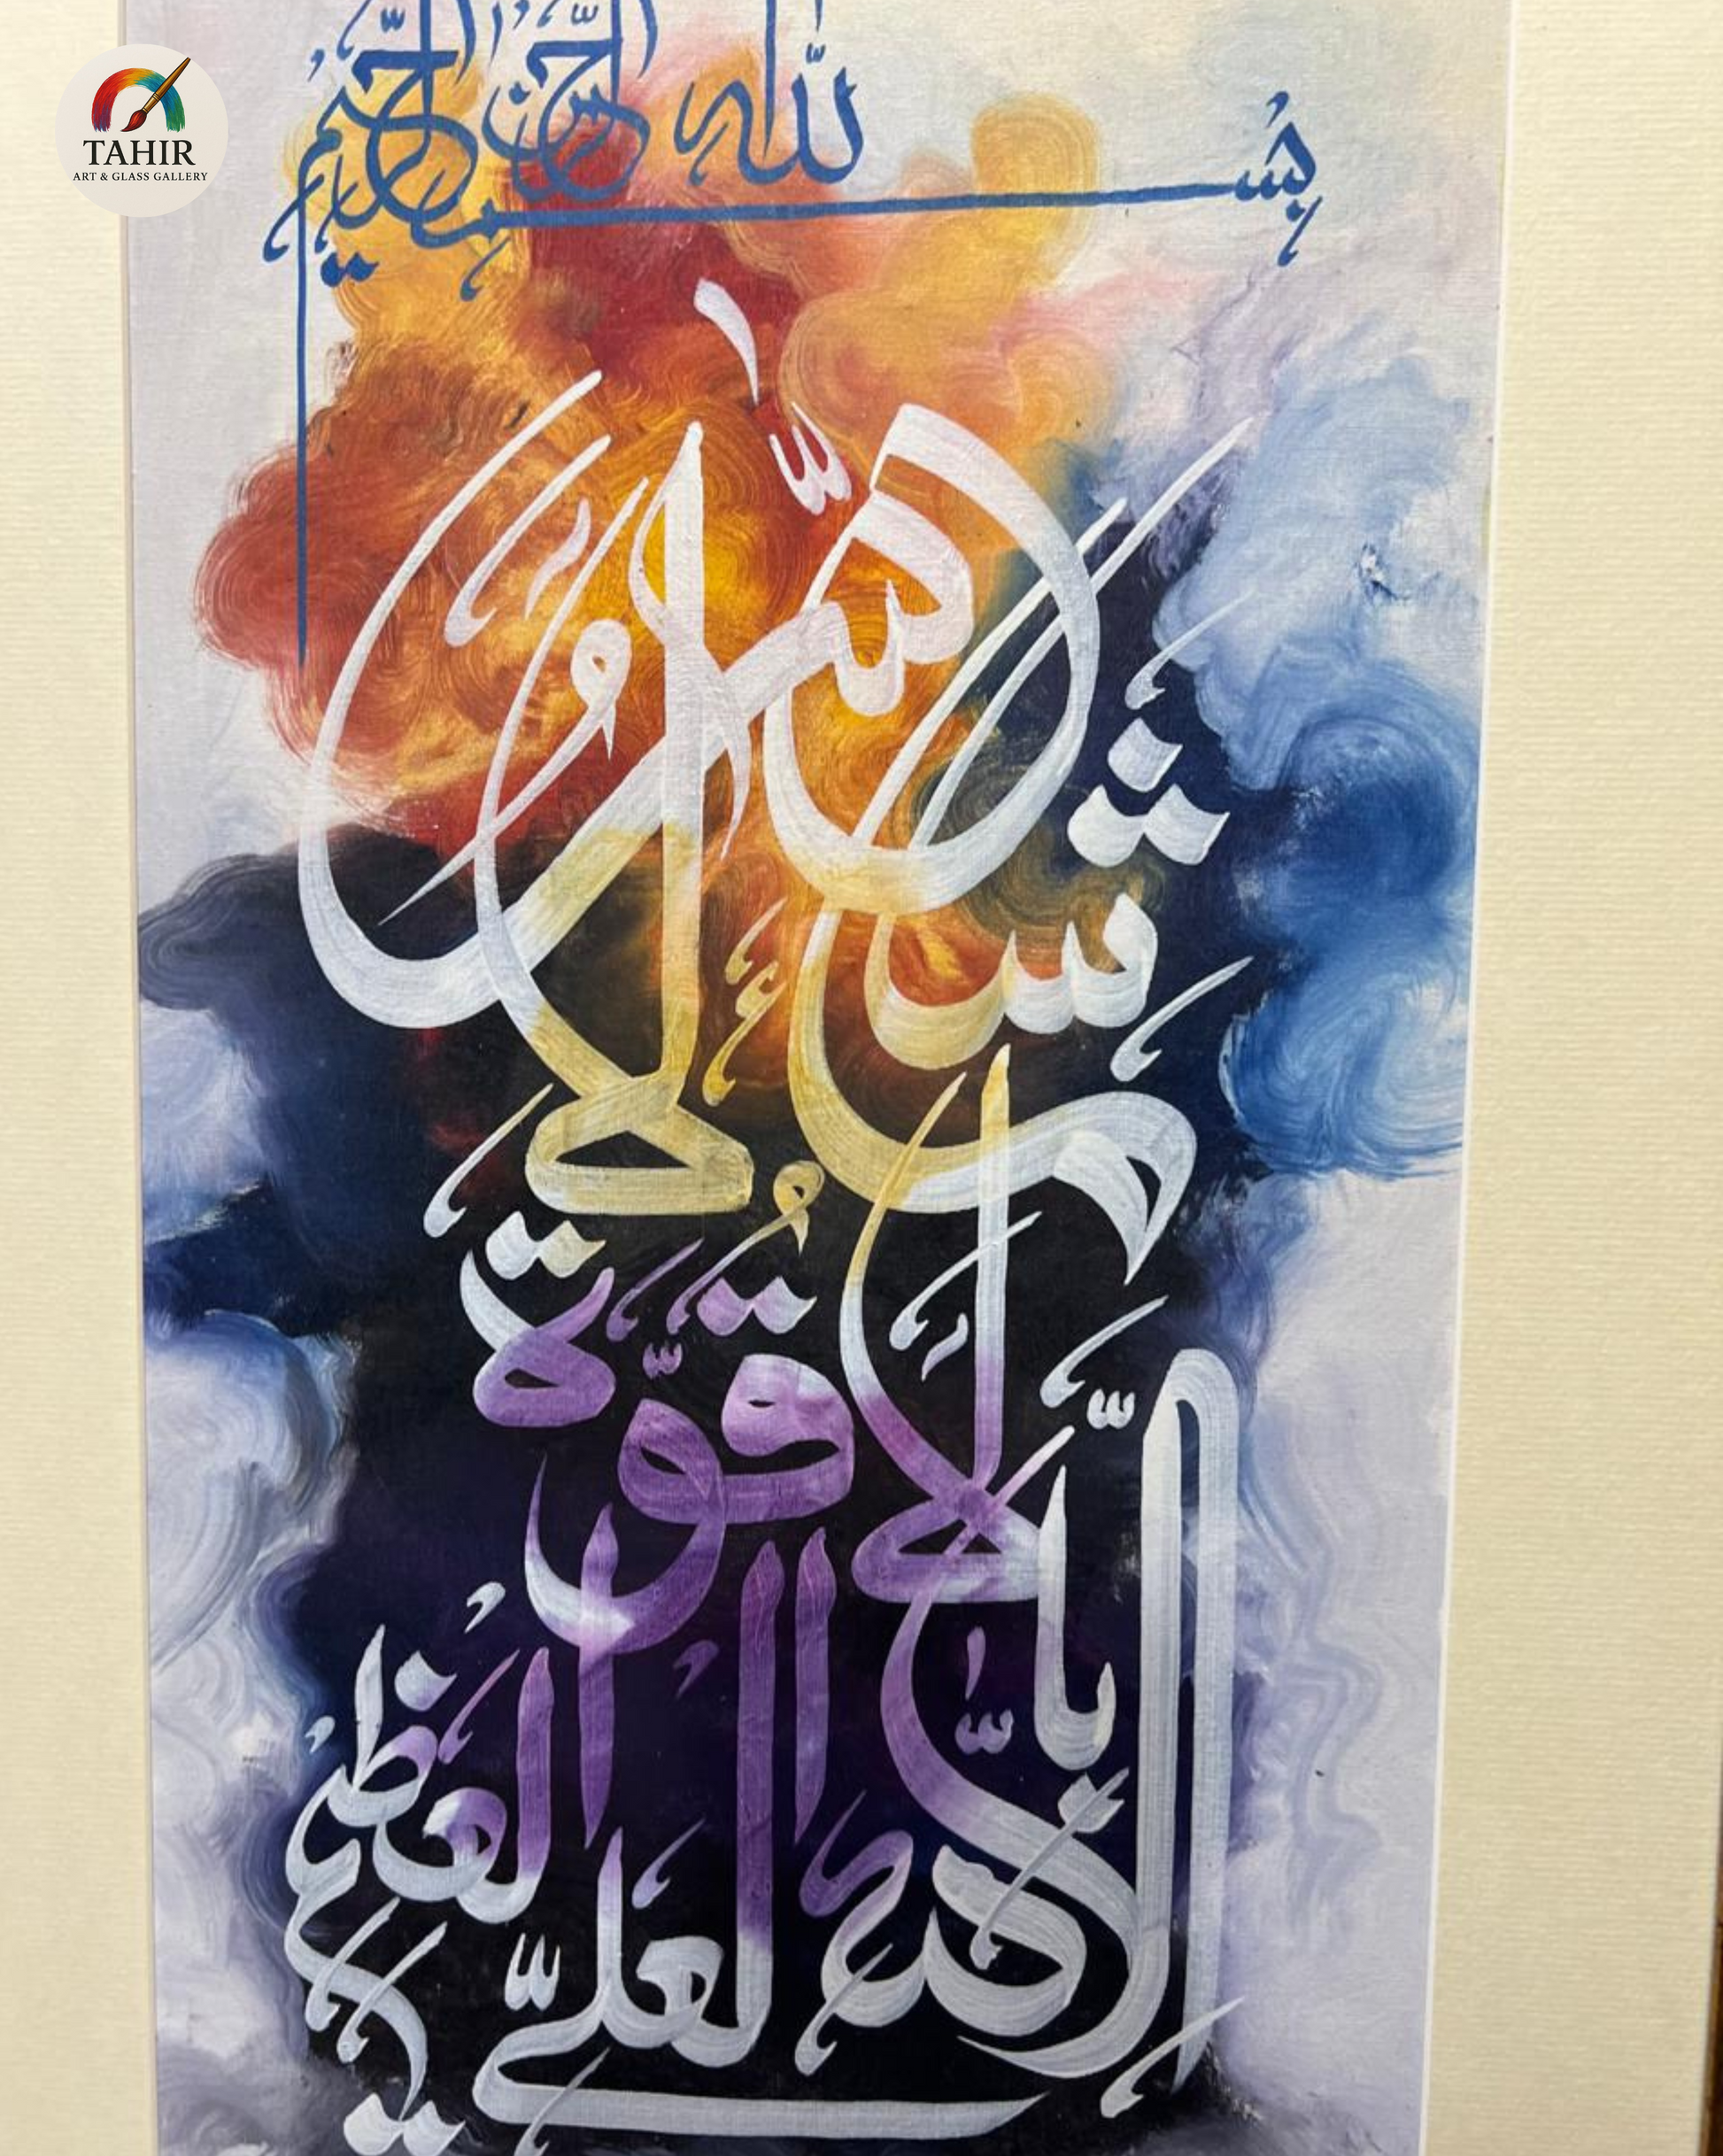 TAHIR
ART & GLASS GALLERY
بسم الله الرحمن الرحيم
ما شاء الله
لا قوة
إلا بالله
العلي العظيم